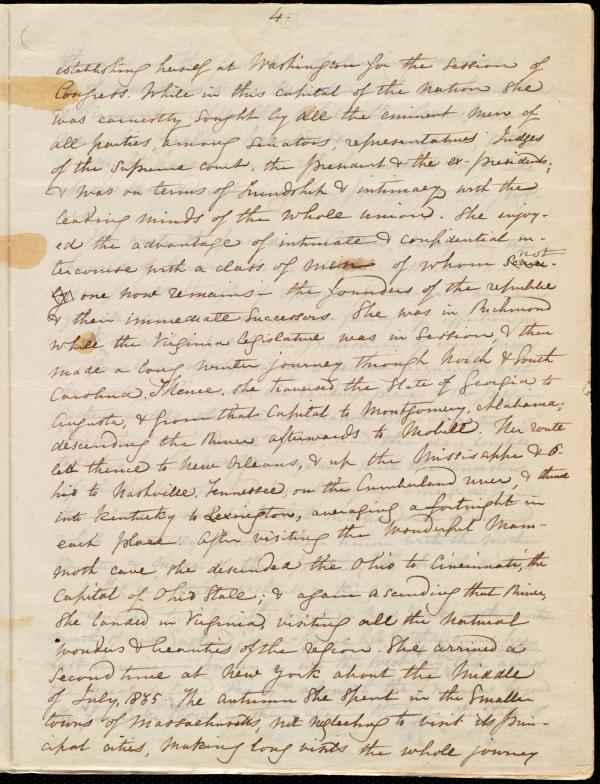 4.
establishing herself at Washington for the Session of
Congress. While in this capital of the nation She
was earnestly sought by all the eminent men of
all parties, among Senators, representatives Judges
of the Supreme court, the president & the ex-presidents;
& was on terms of friendship & intimacy with the
leading minds of the whole union. She enjoy-
ed the advantage of intimate & confidential in-
tercourse with a class of men of whom scarce- not
ly one now remains - the founders of the republic
& their immediate Successors. She was in Richmond
while the Virginia legislature was in Session, & then
made a long winter journey through North & South
Carolina. Thence, she traversed the State of Georgia to
Augusta, & from that Capital to Montgomery, Alabama;
descending the River afterwards to Mobile. Her route
led thence to New Orleans, & up the Missisappi & O-
hio to Nashville, Tennessee, on the Cumberland river, & thence
into Kentucky to Lexington, averaging a fortnight in
each place. After visiting the wonderful Mam-
moth cave, she descended the Ohio to Cincinnati, the
Capital of Ohio State; & again ascending that River,
She landed in Virginia, visiting all the natural
wonders & beauties of the region. She arrived a
Second time at New York about the Middle
of July, 1835. The autumn She spent in the Smaller
towns of Massachusetts, not neglecting to visit its prin-
cipal cities, making long visits the whole journey